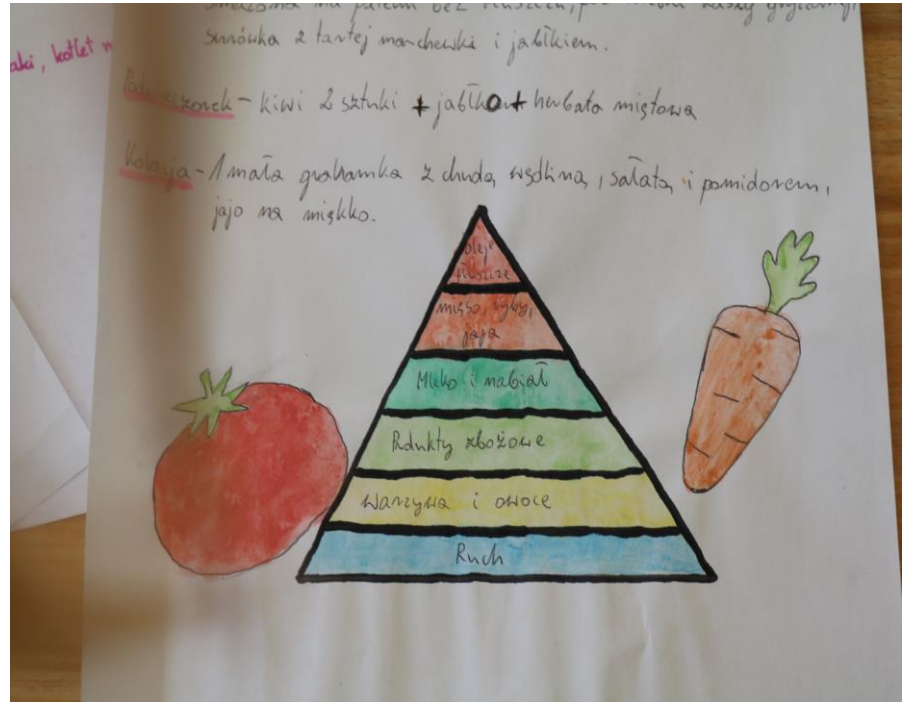 smażona na patelni bez tłuszczu,
surówka z tartej marchewki i jabłkiem.
aki, kotlet
Podwieczorek - kiwi 2 sztuki + jabłko + herbata miętowa
Kolacja - 1 mała grahamka z chudą wędliną, sałatą i pomidorem,
jajo na miękko.
oleje
tłuszcze
mięso, ryby,
jaja
Mleko i nabiał
Produkty zbożowe
Warzywa i owoce
Ruch